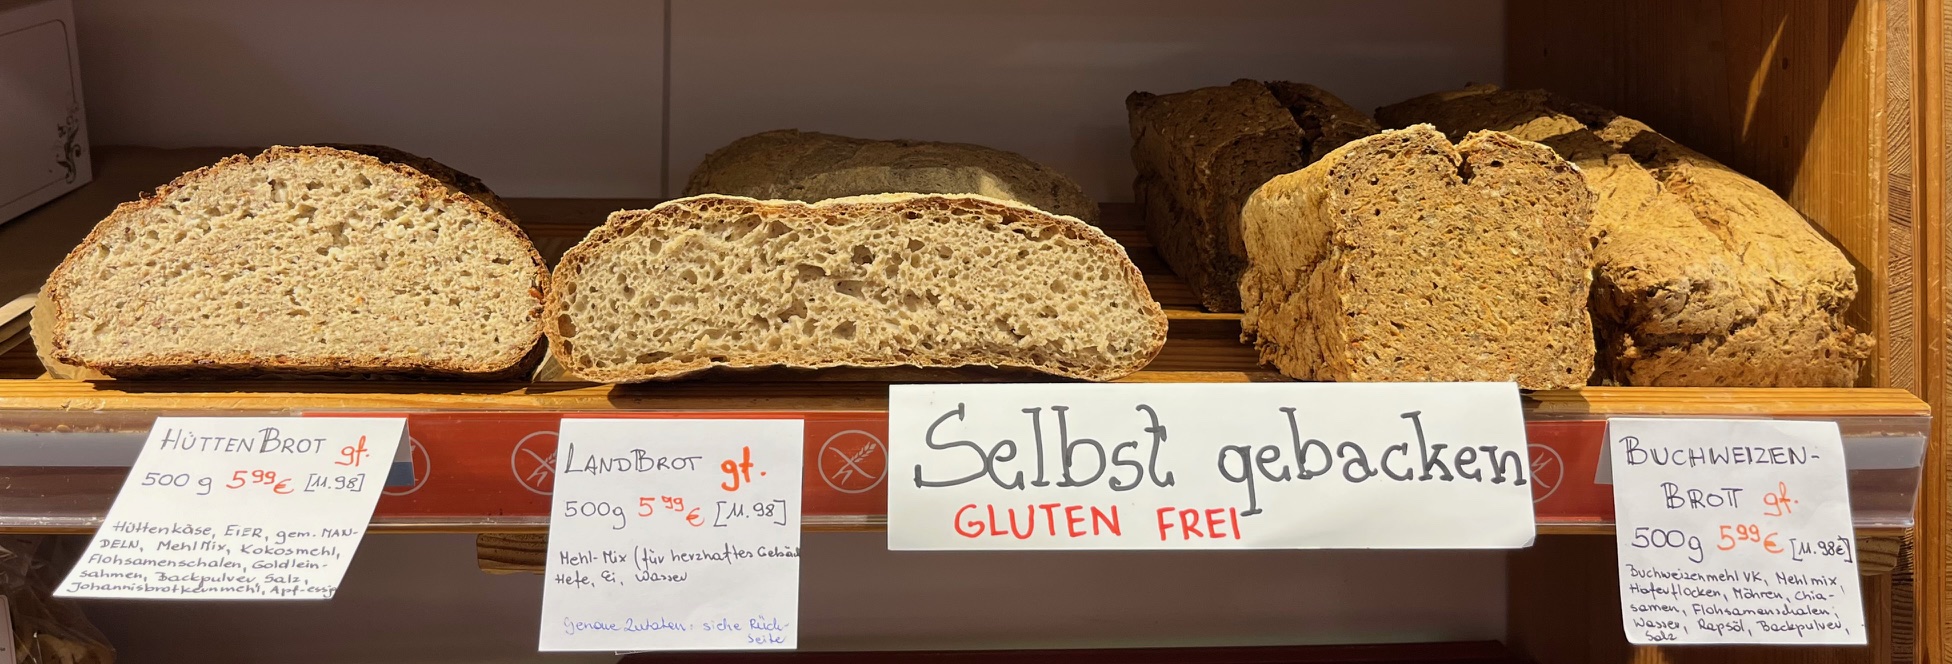 HÜTTENBROT gf.
500 g 5 99 € [11.98]
Hüttenkäse, EIER, gem. MAN-
DELN, Mehl Mix, Kokosmehl,
Flohsamenschalen, Goldlein-
sahmen, Backpulver, Salz,
Johannisbrotkernmehl, Apf-essig
LANDBROT gf.
500g 5 99 € [11.98]
Mehl-Mix (für herzhaftes Gebäck
Hefe, Ei, Wasser
Genaue Zutaten: siehe Rück-
seite
Selbst gebacken
GLUTEN FREI
BUCHWEIZEN-
BROT gf.
500g 5 99 € [11.98€]
Buchweizenmehl VK, Mehlmix,
Haferflocken, Möhren, Chia-
samen, Flohsamenschalen,
Wasser, Rapsöl, Backpulver,
Salz